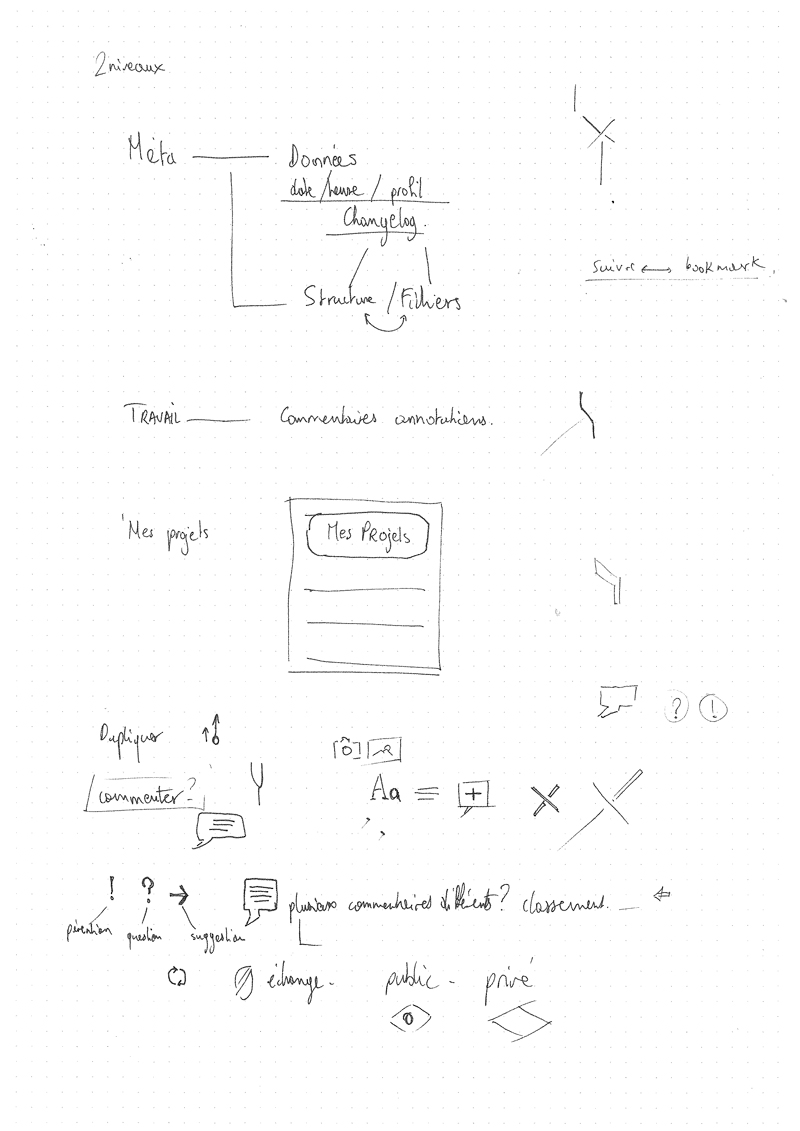 2 niveaux
Méta
Données
date / heure / profil
Changelog.
Suivre ↔ bookmark.
Structure / Fichiers
TRAVAIL
Commentaires annotations.
Mes projets
Mes Projets
? !
Dupliquer
commenter ?
Aa
+
! ? →
question
suggestion
plusieurs commentaires différents ? classement.
échange.
public - privé